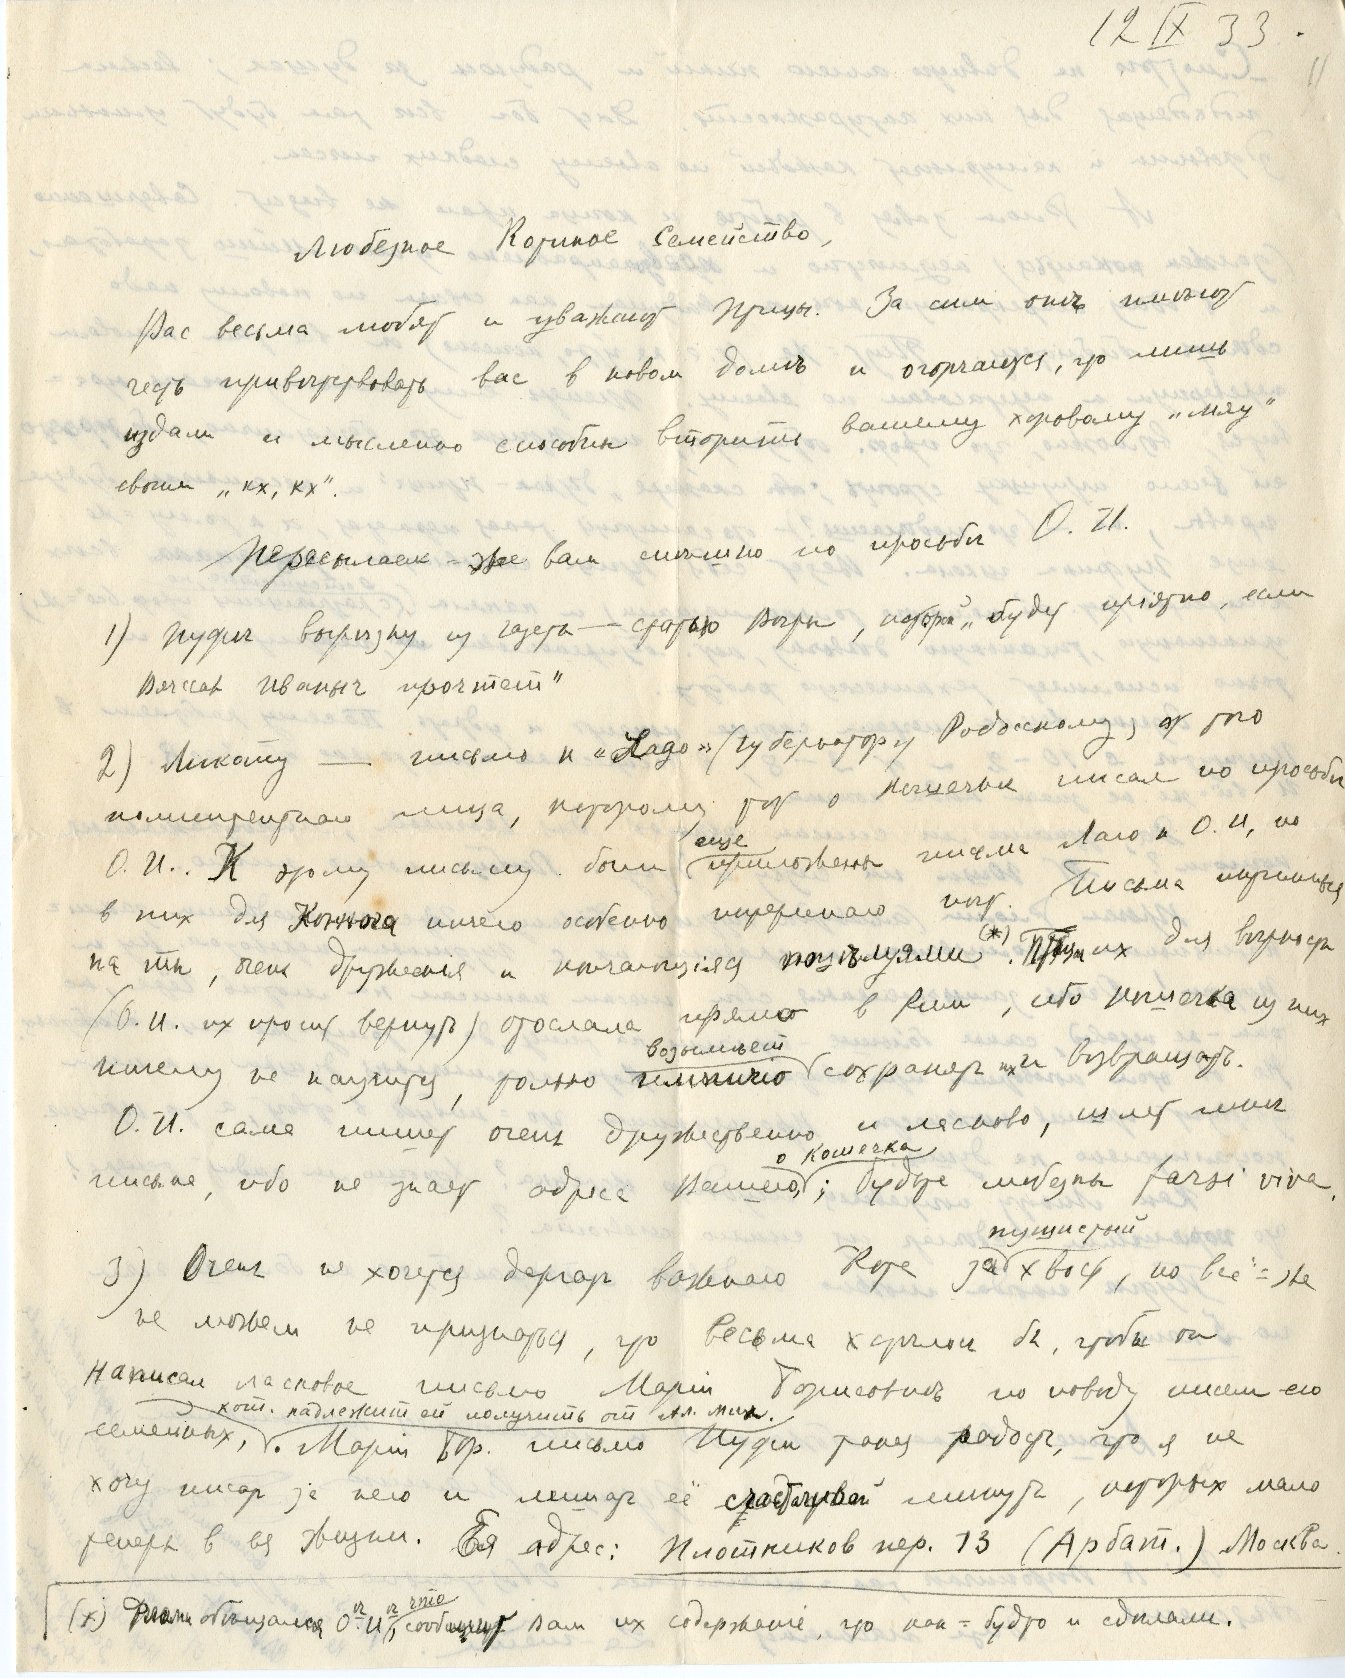 12 IX 33.
Любезное Котиное Семейство,
Вас весьма любят и уважают Птицы. За сим онѣ имѣют
честь привѣтствовать вас в новом домѣ и огорчаются, что лишь
издали и мысленно способны вторить вашему хоровому „мяу"
своим „кх, кх".
Пересылаем-же вам спѣшно по просьбѣ О. И.
1) Пуфи вырѣзку из газеты — статью Вѣры, которой „будет приятно, если
Вячеслав Иваныч прочтет"
2) Ликоту — письмо к «Лядо» (губернатору Родосскому) от того
компетентнаго лица, которому тот о Кошечкѣ писал по просьбѣ
О. И.. К этому письму были еще приложены письма Лаго к О. И., но
в них для Котика ничего особенно интереснаго нѣт. Письма
на ты, очень дружескія и кончающіяся поцѣлуями (*). Птицы их для вѣрности
(О. И. их просит вернуть) отослала прямо в Рим, ибо Кошечка из них
ничему не научится, только возымѣет сохранять их и возвращать.
О. И. сама пишет очень дружественно и ласково, шлет мнѣ
письма, ибо не знает адреса Вашего о Кошечка; будьте любезны farsi viva.
3) Очень не хочется дергать важнаго Кота за пушистый хвост, но всё-же
не можем не признаться, что весьма хотѣлось бы, чтобы он
написал ласковое письмо Маріи Борисовнѣ по поводу писем его
семейных, кот. надлежит ей получить от Ал. Мих. . Маріи Бор. письмо Пуфи такая радость, что я не
хочу писать за него и лишать её счастливой минуты, которых мало
теперь в ея жизни. Ея адрес: Плотников пер. 13 (Арбат.) Москва.
(x) обѣщался О. И., что сообщит вам их содержаніе, что как-будто и сдѣлали.